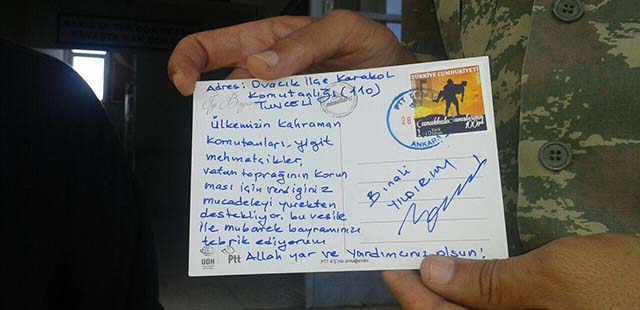 Adres: Ovacık İlçe Karakol
Komutanlığı (110)
TUNCELİ
Ülkemizin Kahraman
Komutanları, yiğit
mehmetçikler,
vatan toprağının korun
ması için verdiğiniz
mücadeleyi yürekten
destekliyor, bu vesile
ile mübarek bayramınızı
tebrik ediyorum
Allah yar ve yardımcınız olsun!
Binali
YILDIRIM
TÜRKİYE CUMHURİYETİ
100
PTT
28
ANKARA
UDH
Ptt
PTT A.Ş.'nin armağanıdır.